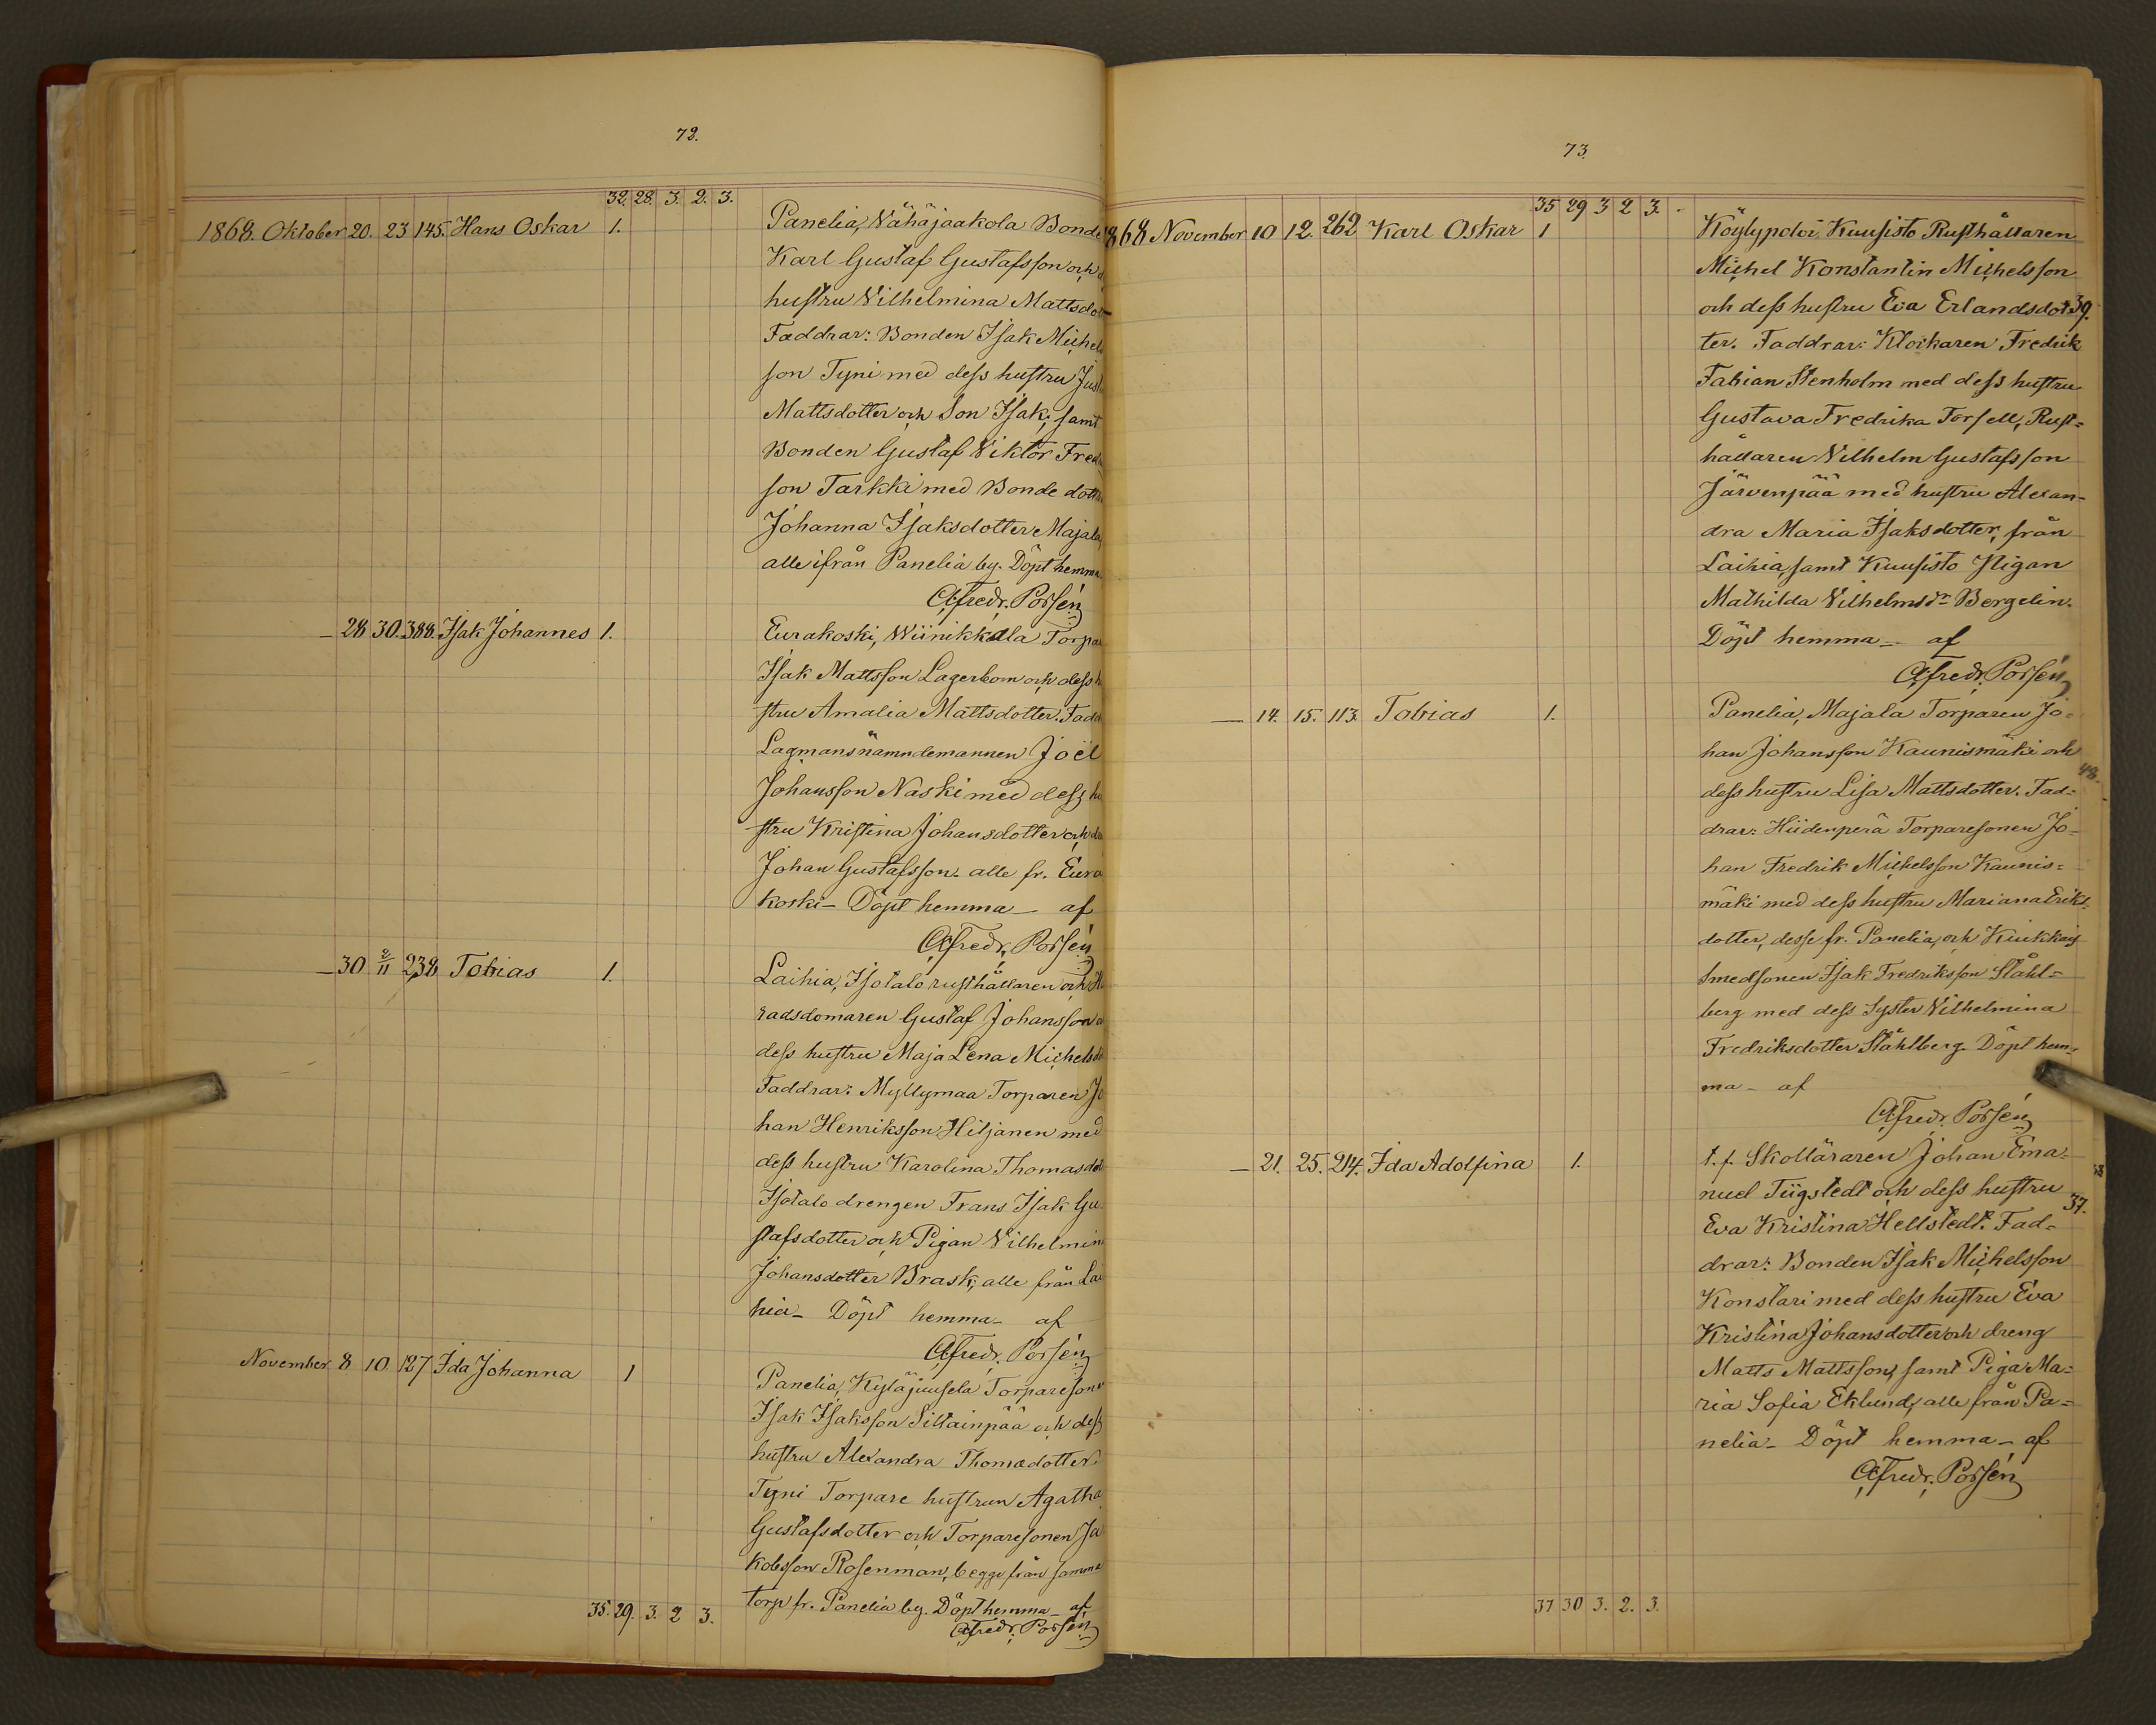 72.
32. 28. 3. 2. 3.
1868. Oktober 20. 23 145. Hans Oskar 1. Panelia, Vähäjaakola Bonde
Karl Gustaf Gustafsson och
hustru Vilhelmina Mattsdot
Faddrar: Bonden Isak Michels
son Tyni med dess hustru
Mattsdotter och Son Isak, samt
Bonden Gustaf Viktor Fred
son Tarkki med Bonde dotter
Johanna Isaksdotter Majala,
alle ifrån Panelia by. Döpt hemma
Afredr. Porsén
— 28 30. 388. Isak Johannes 1. Eurakoski, Wiinikkala Torpar
Isak Mattsson Lagerbom och dess h
stru Amalia Mattsdotter. Fadd
Lagmansnämndemannen Joël
Johansson Naski med dess hu
stru Kristina Johansdotter och
Johan Gustafsson. alle fr. Eura
koski – Döpt hemma – af
Afredr. Porsén
— 30 2/11 238 Tobias 1. Laihia, Isotalo rusthållaren och Hä
radsdomaren Gustaf Johansson o
dess hustru Maja Lena Michelsdo
Faddrar: Myllymaa Torparen Jo
han Henriksson Hiljanen med
dess hustru Karolina Thomasdot
Isotalo drengen Frans Isak Gu
stafsdotter och Pigan Vilhelmin
Johansdotter Brask, alle från Lai
hia – Döpt hemma – af
Afredr. Porsén
November 8 10. 127 Ida Johanna 1 Panelia, Kyläjuusela Torparesone
Isak Isaksson Siltainpää och dess
hustru Alexandra Thomædotter.
Tyni Torpare hustrun Agatha
Gustafsdotter och Torparesonen Ja
kobsson Rosenman, begge från samma
torp fr. Panelia by. Döpt hemma – af
Afredr. Porsén
35. 29. 3. 2 3.
73.
35 29 3 2 3.
868 November 10 12. 262 Karl Oskar 1 Köylypolvi Kuusisto Rusthållaren
Michel Konstantin Michelsson
och dess hustru Eva Erlandsdot 39.
ter. Faddrar: Klockaren Fredrik
Fabian Stenholm med dess hustru
Gustava Fredrika Forsell, Rust=
hållaren Vilhelm Gustafsson
Järvenpää med hustru Alexan-
dra Maria Isaksdotter, från
Laihia samt Kuusisto Pigan
Mathilda Vilhelmsdr Bergelin.
Döpt hemma – af
Afredr. Porsén
— 14. 15. 113. Tobias 1. Panelia, Majala Torparen Jo=
han Johansson Kaunismäki och
48.
dess hustru Lisa Mattsdotter. Fad=
drar: Hiidenperä Torparesonen Jo-
han Fredrik Michelsson Kaunis=
mäki med dess hustru Mariana Eriks-
dotter, desse fr. Panelia, och Kiukkais
Smedsonen Isak Fredriksson Ståhl=
berg med dess Syster Vilhelmina
Fredriksdotter Ståhlberg. Döpt hem=
ma – af
Afredr. Porsén
— 21. 25. 214. Ida Adolfina 1. t. f. Skolläraren Johan Ema=
nuel Tiigstedt och dess hustru
37.
Eva Kristina Hellstedt. Fad-
drar: Bonden Isak Michelsson
Konstari med dess hustru Eva
Kristina Johansdotter och dreng
Matts Mattsson, samt Piga Ma=
ria Sofia Eklund, alle från Pa=
nelia – Döpt hemma – af
Afredr. Porsén
37 30 3. 2. 3.